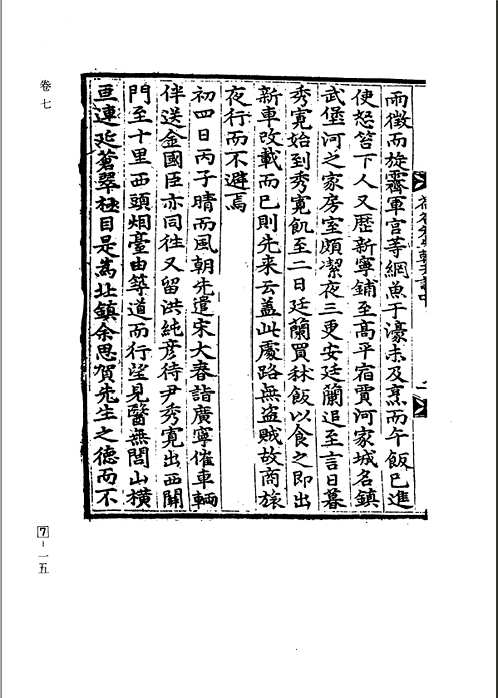 雨徵而旋霽軍官等網魚于濠未及烹而午飯已進
使怒笞下人又歷新寧鋪至高平宿賈河家城名鎮
武堡河之家房室頗潔夜三更安廷蘭追至言日暮
秀寬始到秀寬飢至二日廷蘭買秫飯以食之即出
新車改載而已則先来云盖此處路無盗賊故商旅
夜行而不避焉
初四日丙子晴而風朝先遣宋大春詣廣寧催車輌
伴送金國臣亦同往又留洪純彦待尹秀寬出西關
門至十里西頭烟臺由築道而行望見醫無閭山橫
亘連延蒼翠極目是為北鎮余思賀先生之德而不
卷七
7-一五